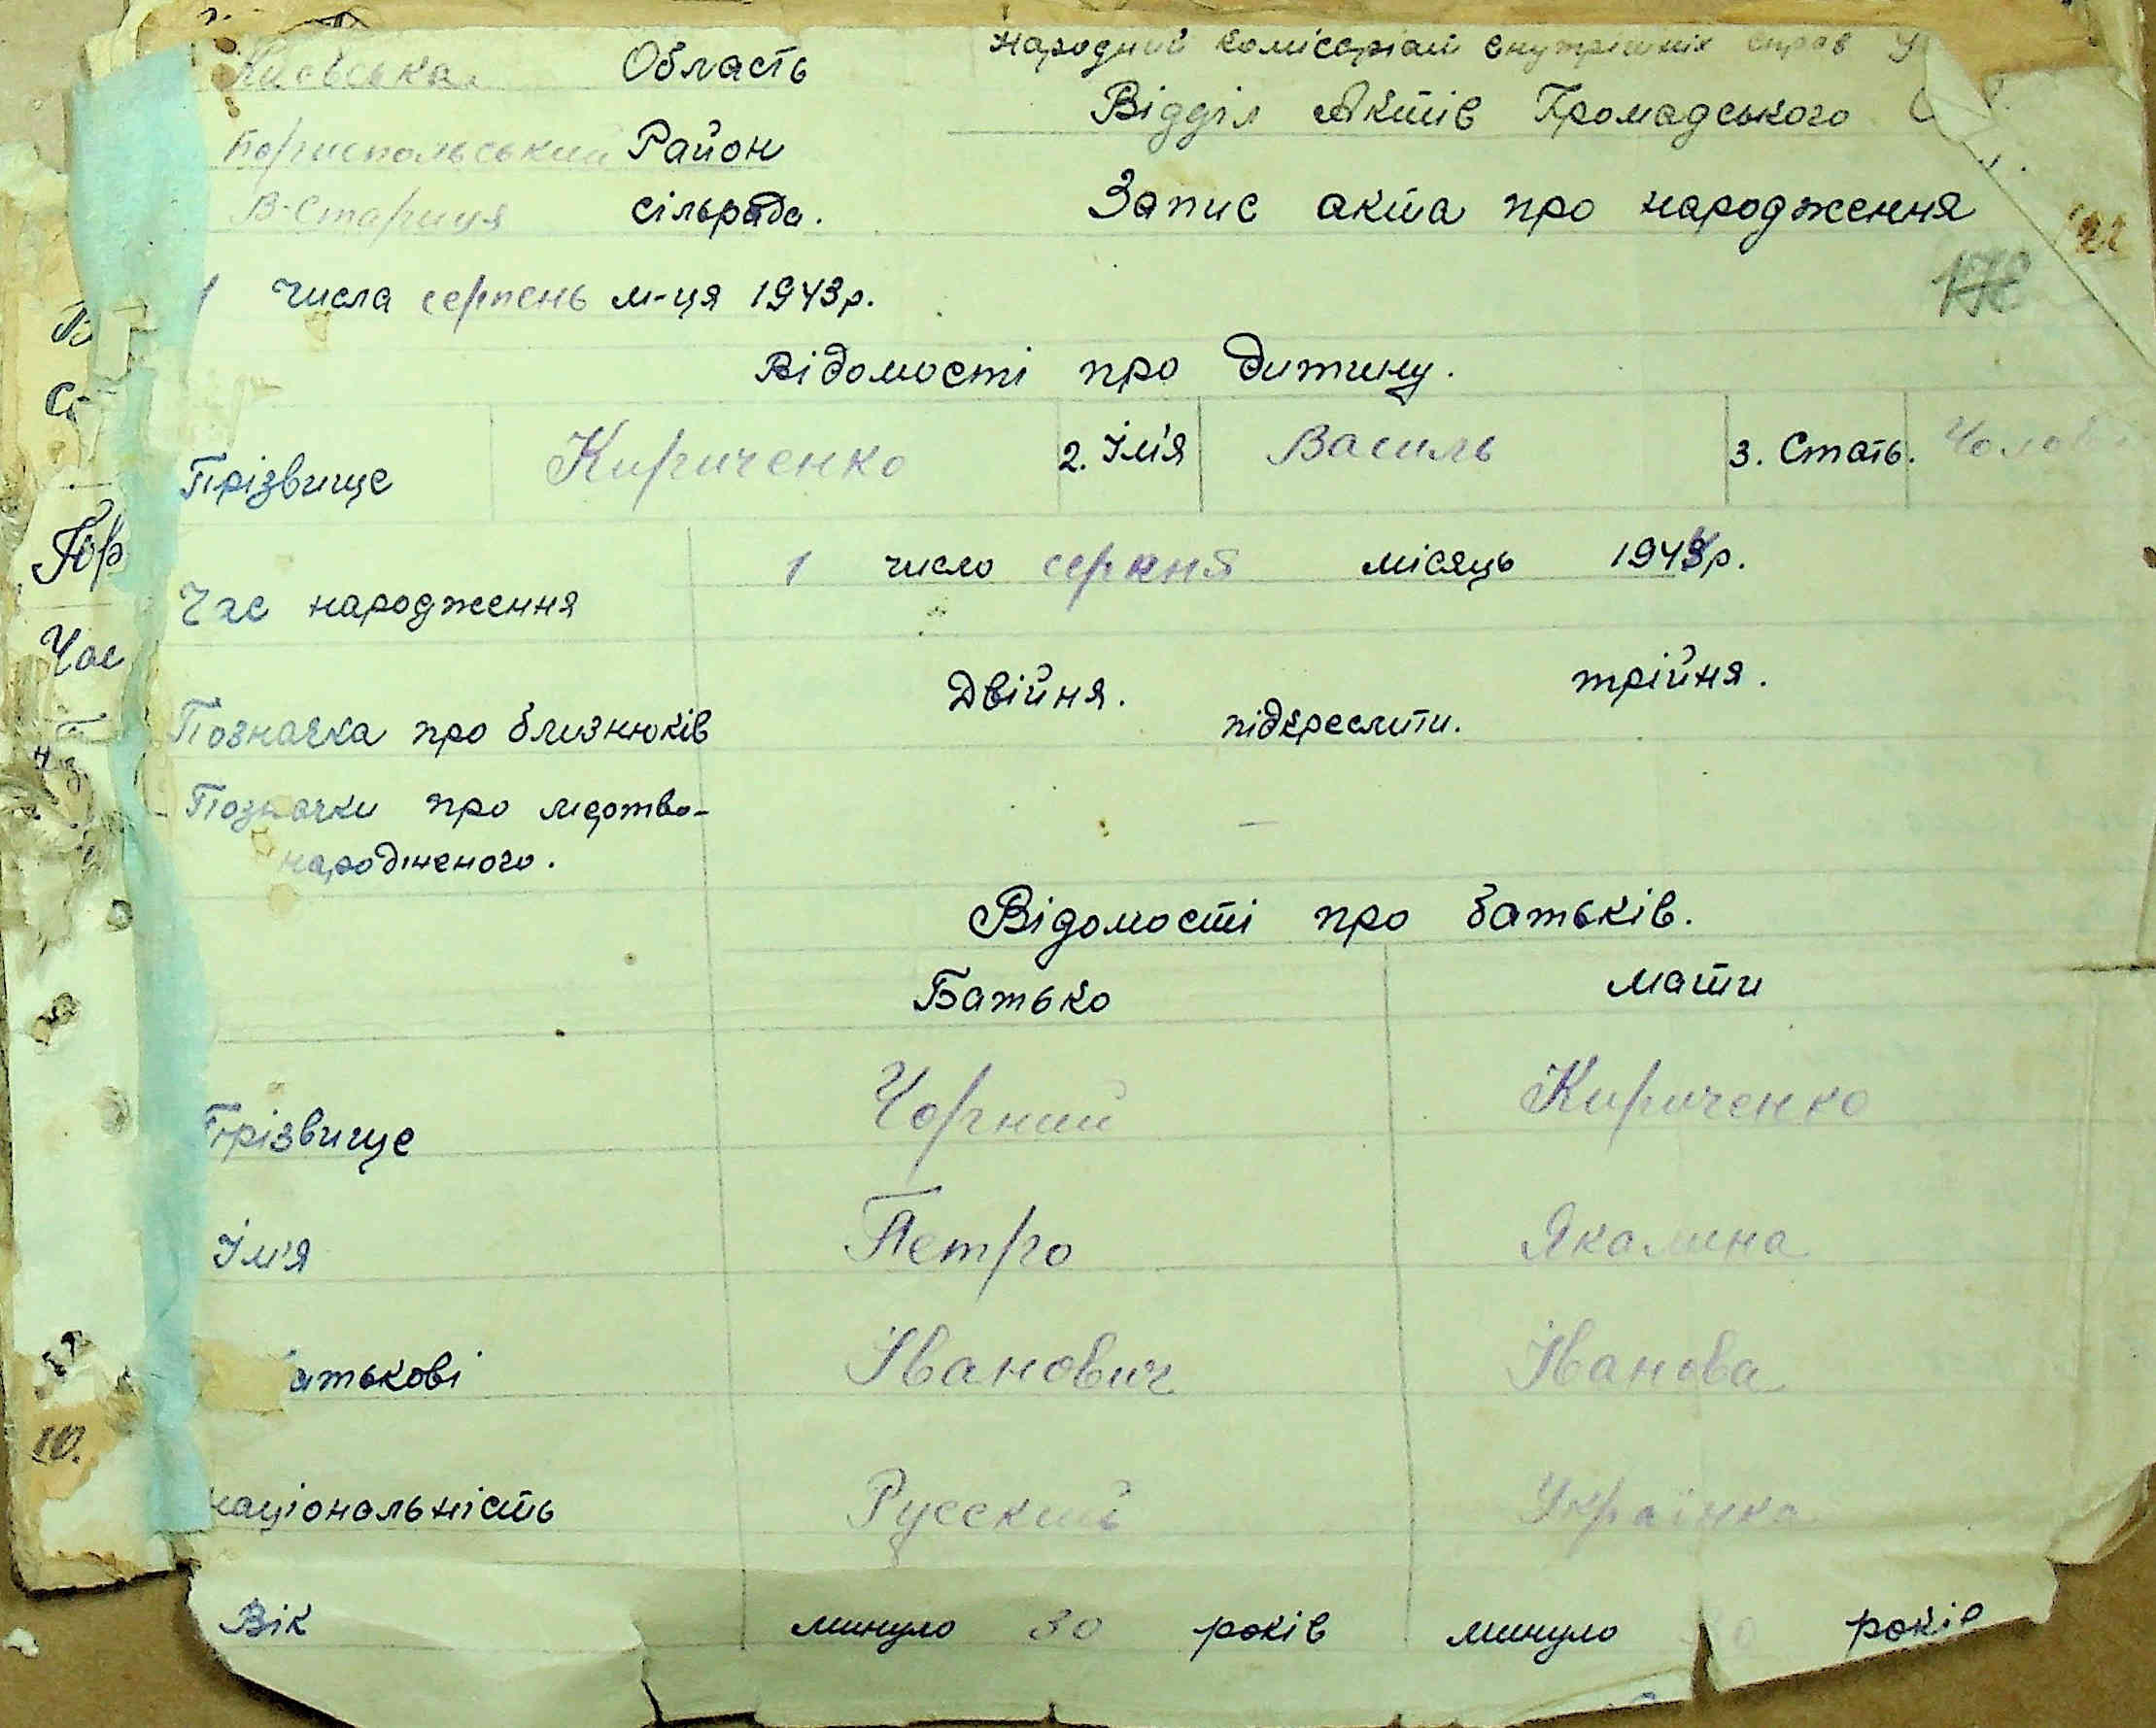 Київська Область
Народний комісаріат внутрішніх справ
Бориспольський Район
Відділ Актів Громадського
В-Стариця сільрада.
Запис акта про народження
1 числа серпень м-ця 1943р.
178
Відомості про дитину.
Прізвище Кириченко 2. Ім'я Василь 3. Стать. Чолов
Час народження 1 число серпня місяць 1943р.
Позначка про близнюків Двійня. підкреслити. трійня.
Позначки про мертво-
народженого. —
Відомості про батьків.
Батько Мати
Прізвище Чорний Кириченко
Ім'я Петро Якалина
атькові Іванович Іванова
національність Русский Українка
Вік минуло 30 років минуло років